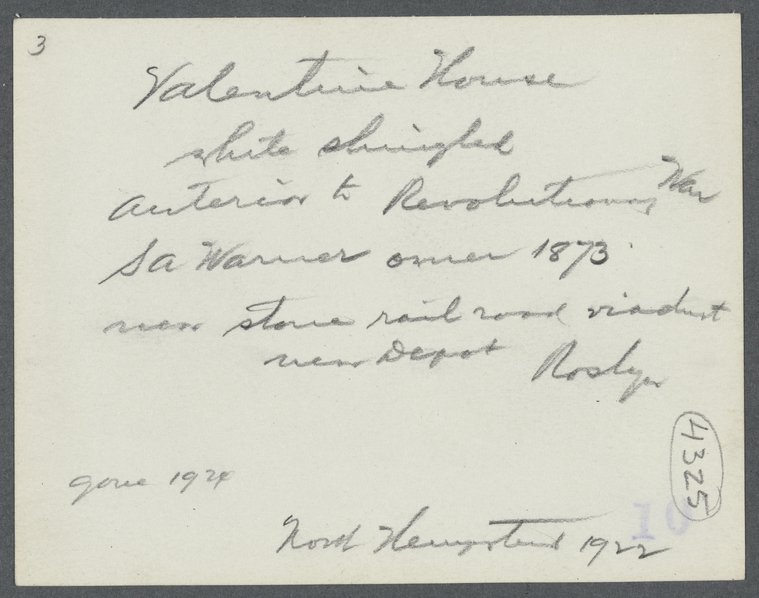 3
Valentine House
white shingled
anterior to Revolutionary War
Sa Warner owner 1873
near stone rail road viaduct
near Depot Roslyn
4325
gone 1924
10
North Hempstead 1922